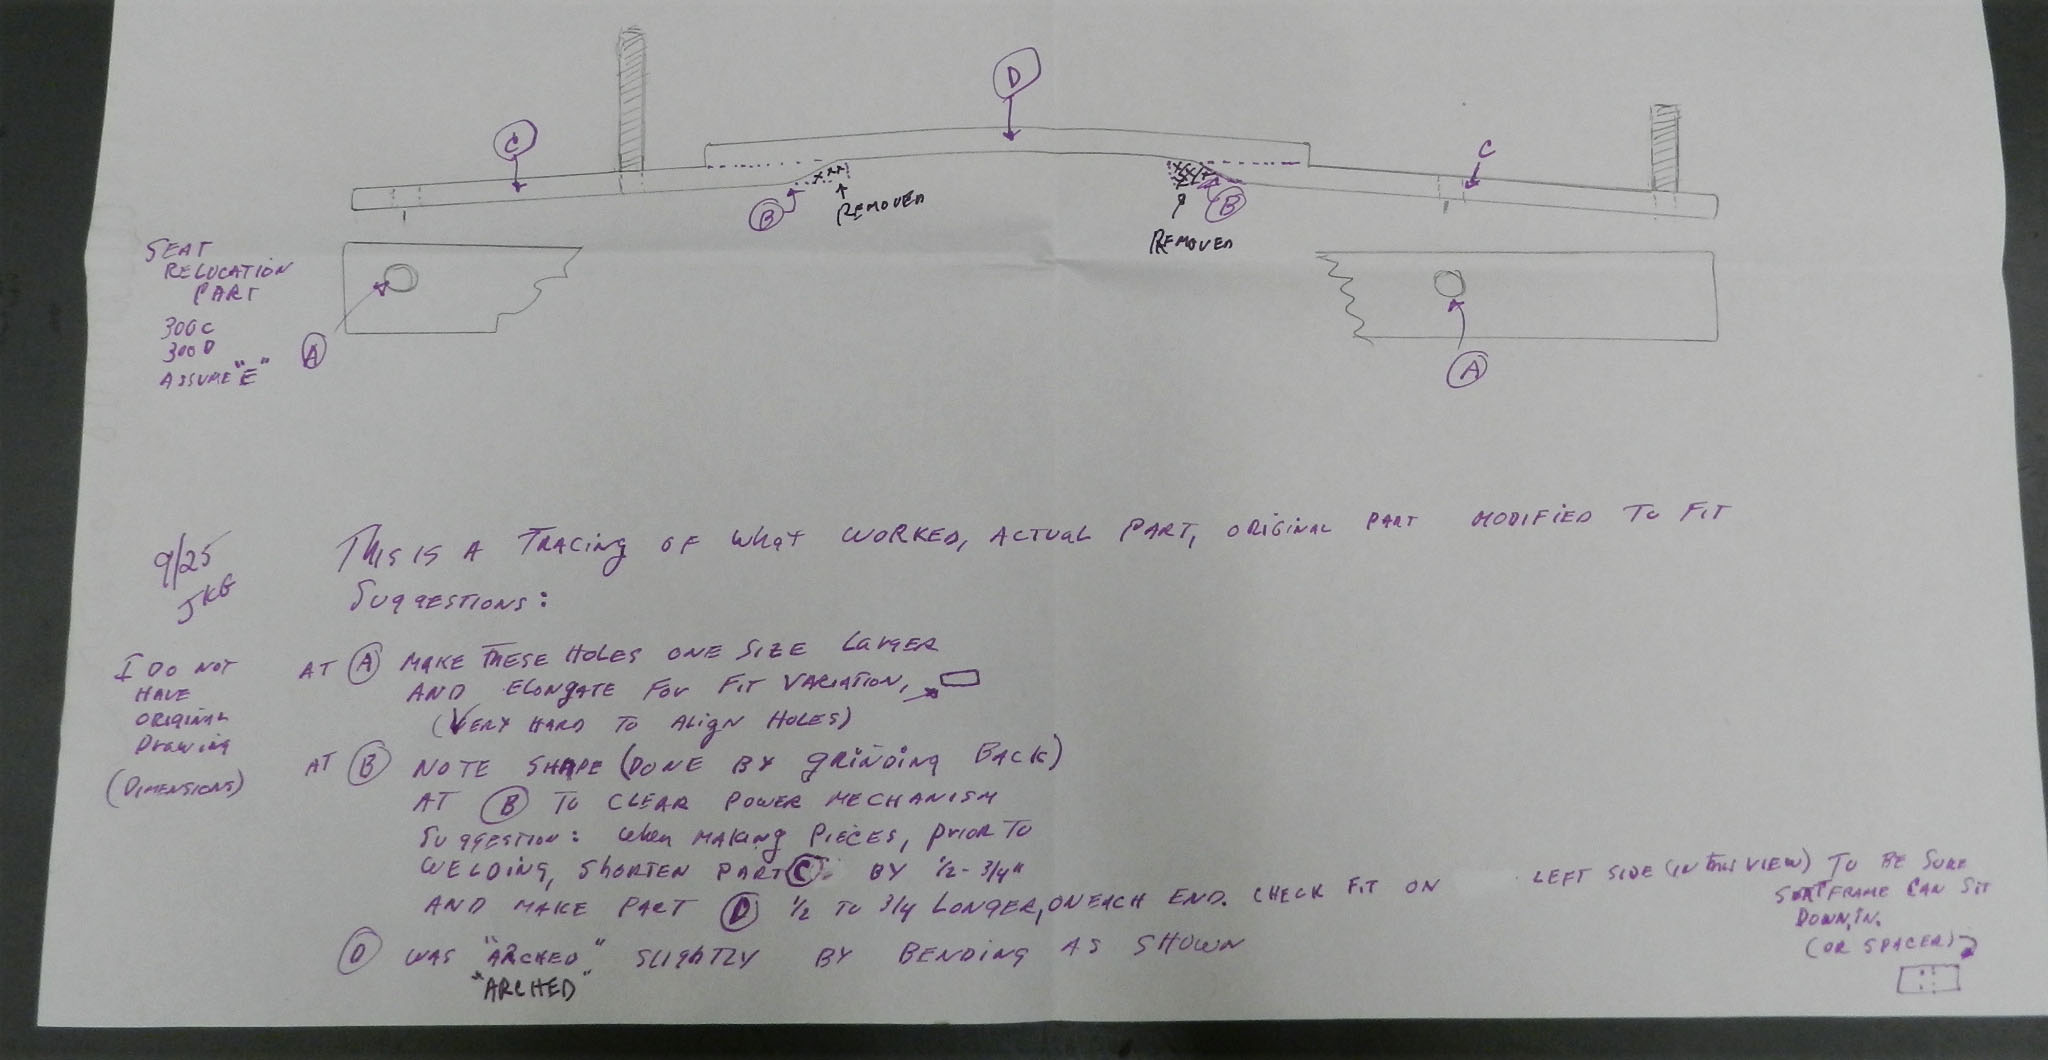 D
C
C
B
REMOVED
B
REMOVED
SEAT
RELOCATION
PART
300C
300D
ASSUME "E"
A
A
9/25
JKG
THIS IS A TRACING OF WHAT WORKED, ACTUAL PART, ORIGINAL PART MODIFIED TO FIT
SUGGESTIONS:
I DO NOT
HAVE
ORIGINAL
Drawing
(DIMENSIONS)
AT A MAKE THESE HOLES ONE SIZE LARGER
AND ELONGATE FOR FIT VARIATION,
(VERY HARD TO ALIGN HOLES)
AT B NOTE SHAPE (DONE BY GRINDING BACK)
AT B TO CLEAR POWER MECHANISM
SUGGESTION: When MAKING PIECES, PRIOR TO
WELDING, SHORTEN PART C BY 1/2 - 3/4"
AND MAKE PART D 1/2 TO 3/4 LONGER, ON EACH END. CHECK FIT ON LEFT SIDE (IN THIS VIEW) TO BE SURE
SEAT FRAME CAN SIT
DOWN, IN.
(OR SPACER)
D WAS "ARCHED" SLIGHTLY BY BENDING AS SHOWN
"ARCHED"